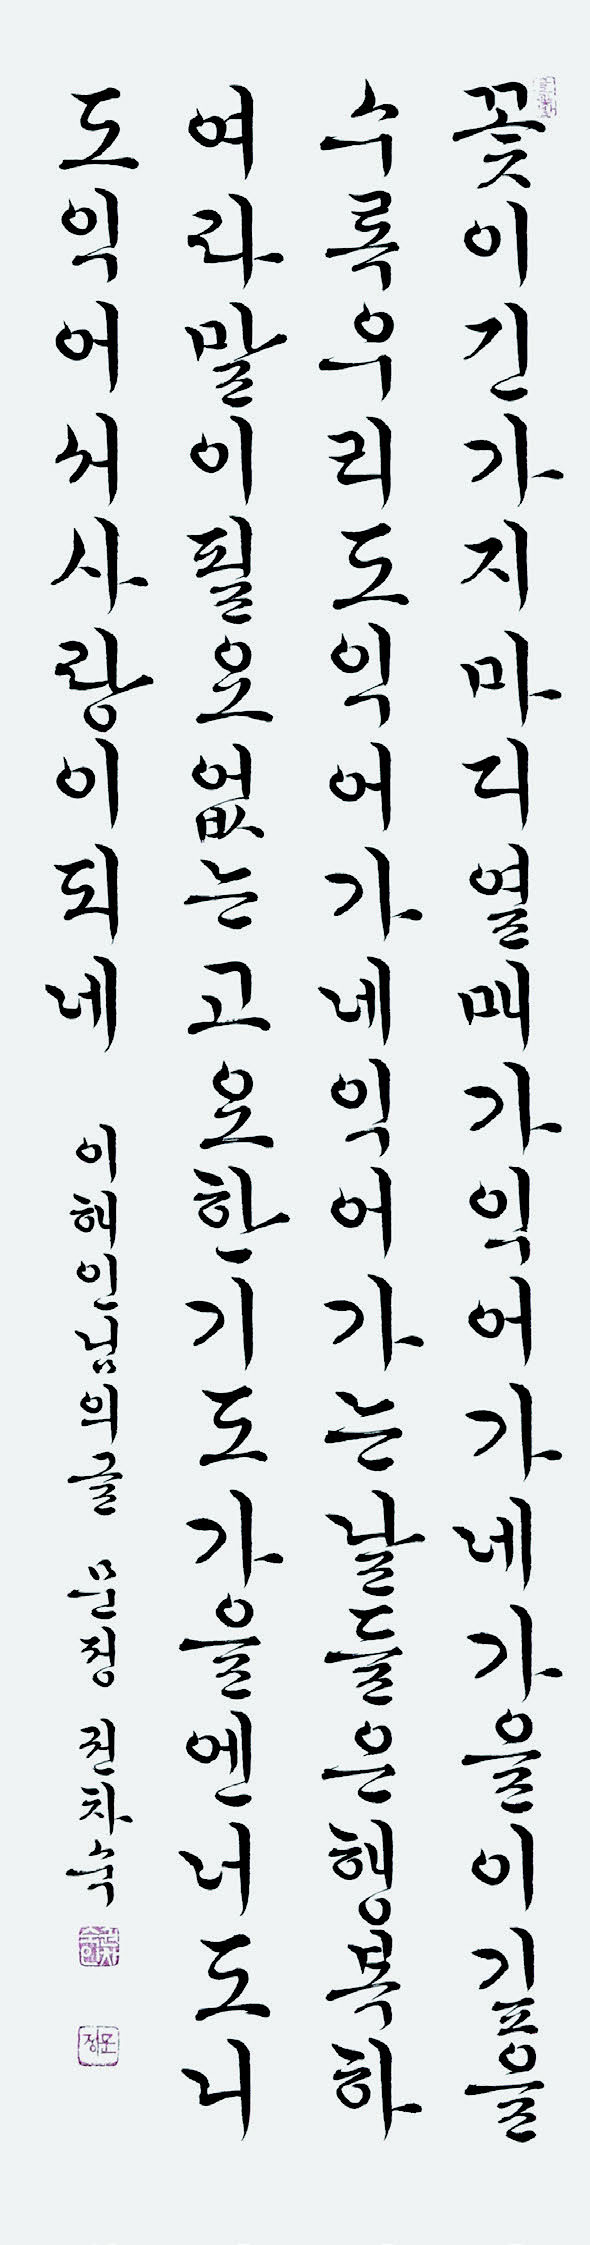 꽃이긴가지마디열매가익어가네가을이깊을
수록우리도익어가네익어가는날들은행복하
여라말이필요없는고요한기도가을엔너도니
도익어서사랑이되네 이해인님의글 문정 전차숙
문정